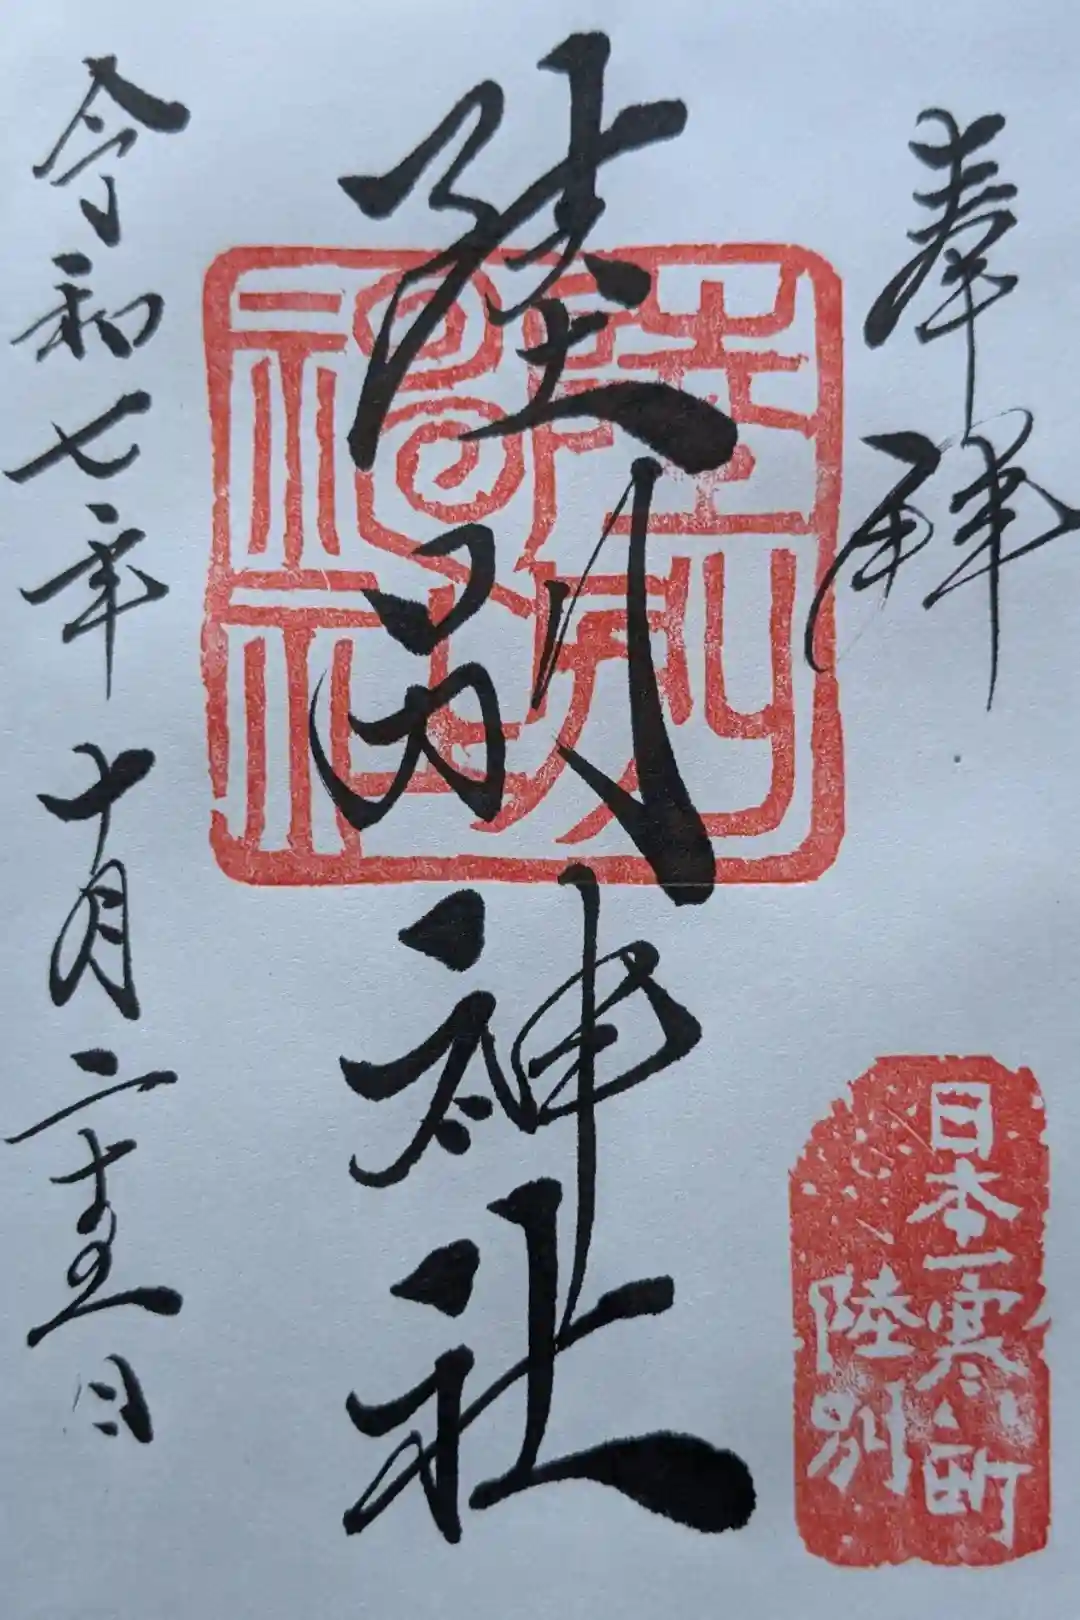 奉拝
日本一寒い町
陸別
陸別神社
陸別神社
令和七年十月二十五日